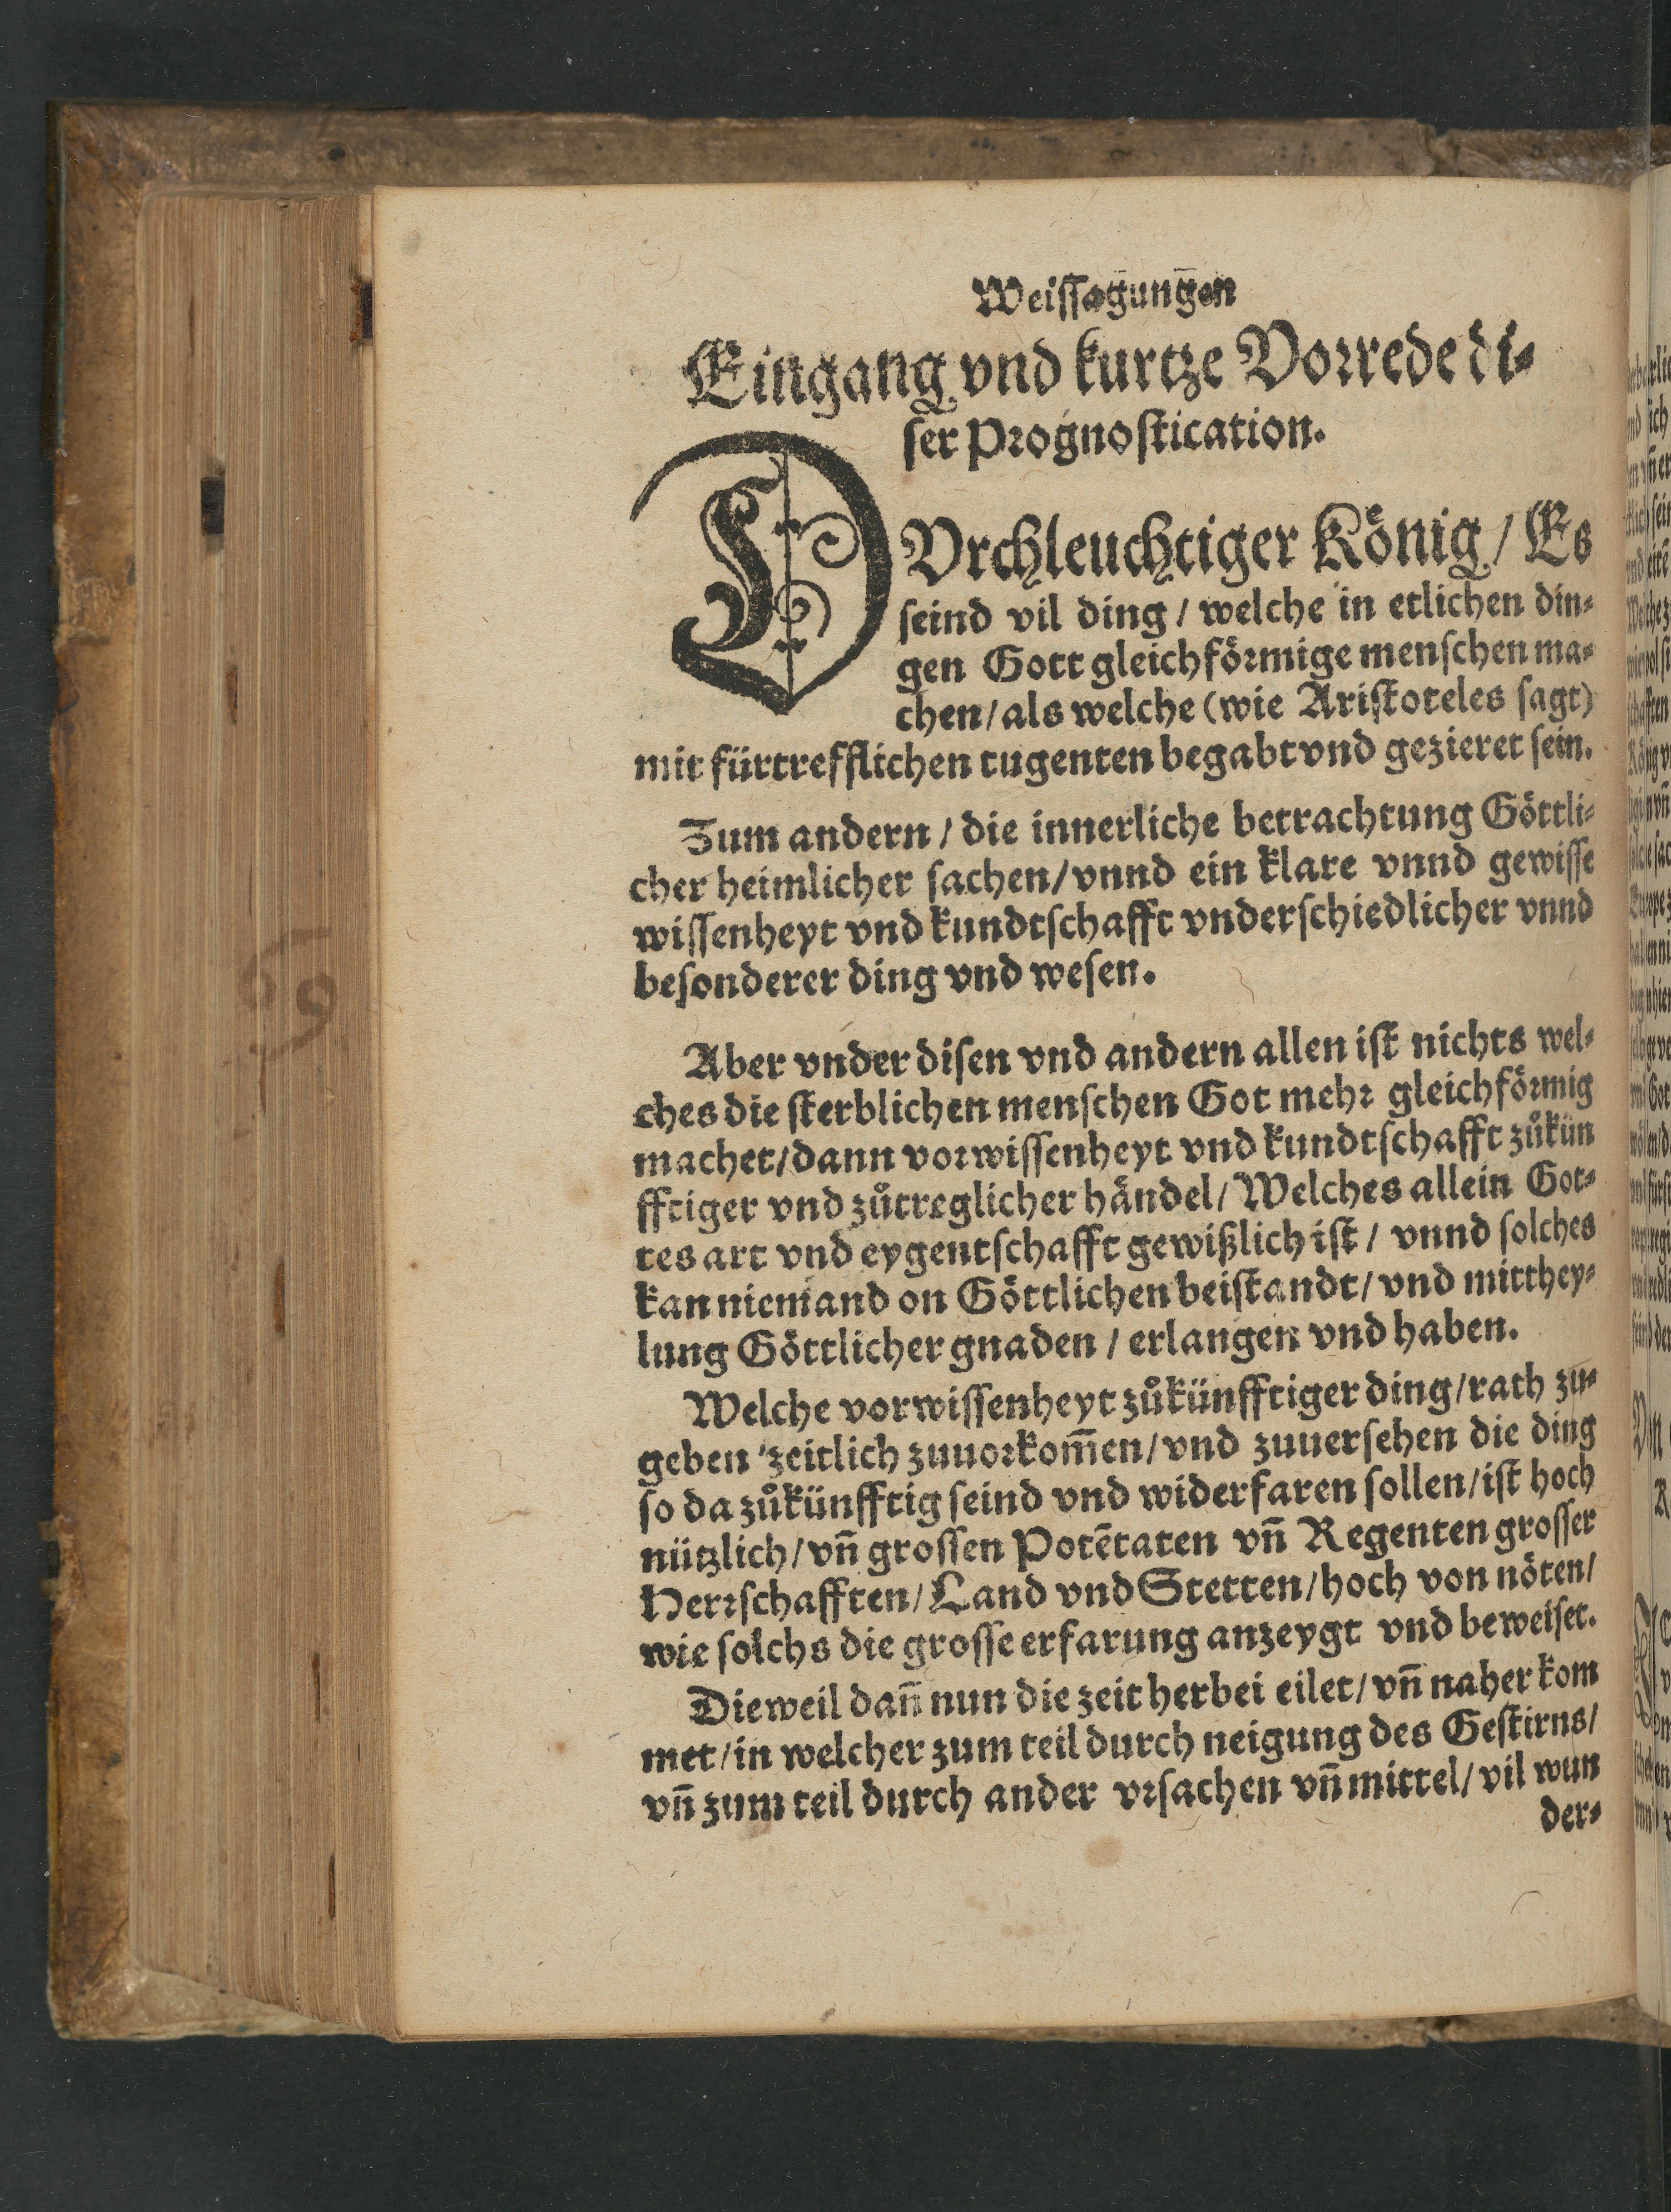 Weiſſagungen
Eingang vnd kurtze Vorrede di⸗
ſer Prognoſtication.
DVrchleuchtiger König / Es
ſeind vil ding / welche in etlichen din⸗
gen Gott gleichförmige menſchen ma⸗
chen / als welche (wie Ariſtoteles ſagt)
mit fürtrefflichen tugenten begabt vnd gezieret ſein.
Zum andern / die innerliche betrachtung Göttli⸗
cher heimlicher ſachen / vnnd ein klare vnnd gewiſſe
wiſſenheyt vnd kundtſchafft vnderſchiedlicher vnnd
beſonderer ding vnd weſen.
Aber vnder diſen vnd andern allen iſt nichts wel⸗
ches die ſterblichen menſchen Got mehr gleichförmig
machet / dann vorwiſſenheyt vnd kundtſchafft zůkün
fftiger vnd zůtreglicher händel / Welches allein Got⸗
tes art vnd eygentſchafft gewißlich iſt / vnnd ſolches
kan niemand on Göttlichen beiſtandt / vnd mitthey⸗
lung Göttlicher gnaden / erlangen vnd haben.
Welche vorwiſſenheyt zůkünfftiger ding / rath zu⸗
geben zeitlich zuuorkom̄en / vnd zuuerſehen die ding
ſo da zůkünfftig ſeind vnd widerfaren ſollen / iſt hoch
nützlich / vn̄ groſſen Potētaten vn̄ Regenten groſſer
Herrſchafften / Land vnd Stetten / hoch von nöten /
wie ſolchs die groſſe erfarung anzeygt vnd beweiſet.
Dieweil dan̄ nun die zeit herbei eilet / vn̄ naher kom
met / in welcher zum teil durch neigung des Geſtirns /
vn̄ zum teil durch ander vrſachen vn̄ mittel / vil wun
der⸗